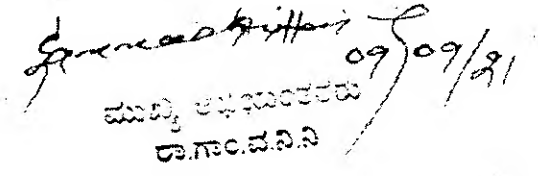 09/09/21
ಮುಖ್ಯ ಅಭಿಯಂತರರು
ರಾ.ಗಾಂ.ವ.ನಿ.ನಿ